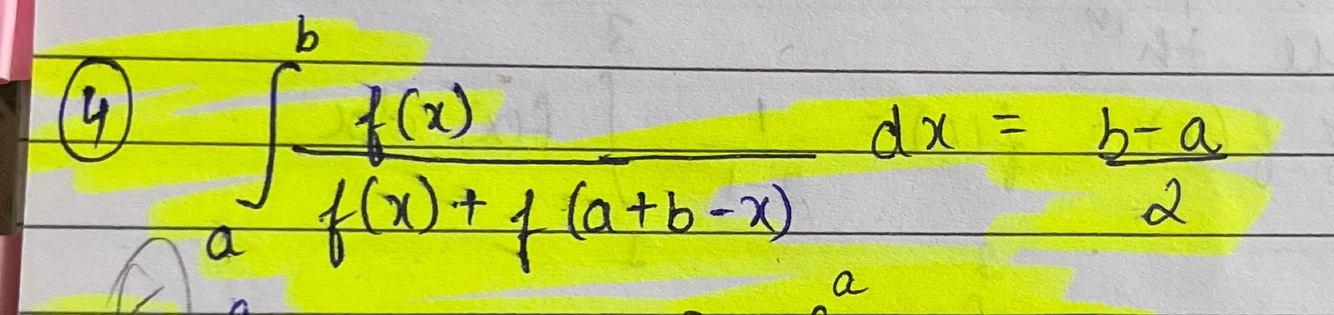 ④ ∫_a^b f(x) / (f(x) + f(a+b-x)) dx = (b-a)/2
a